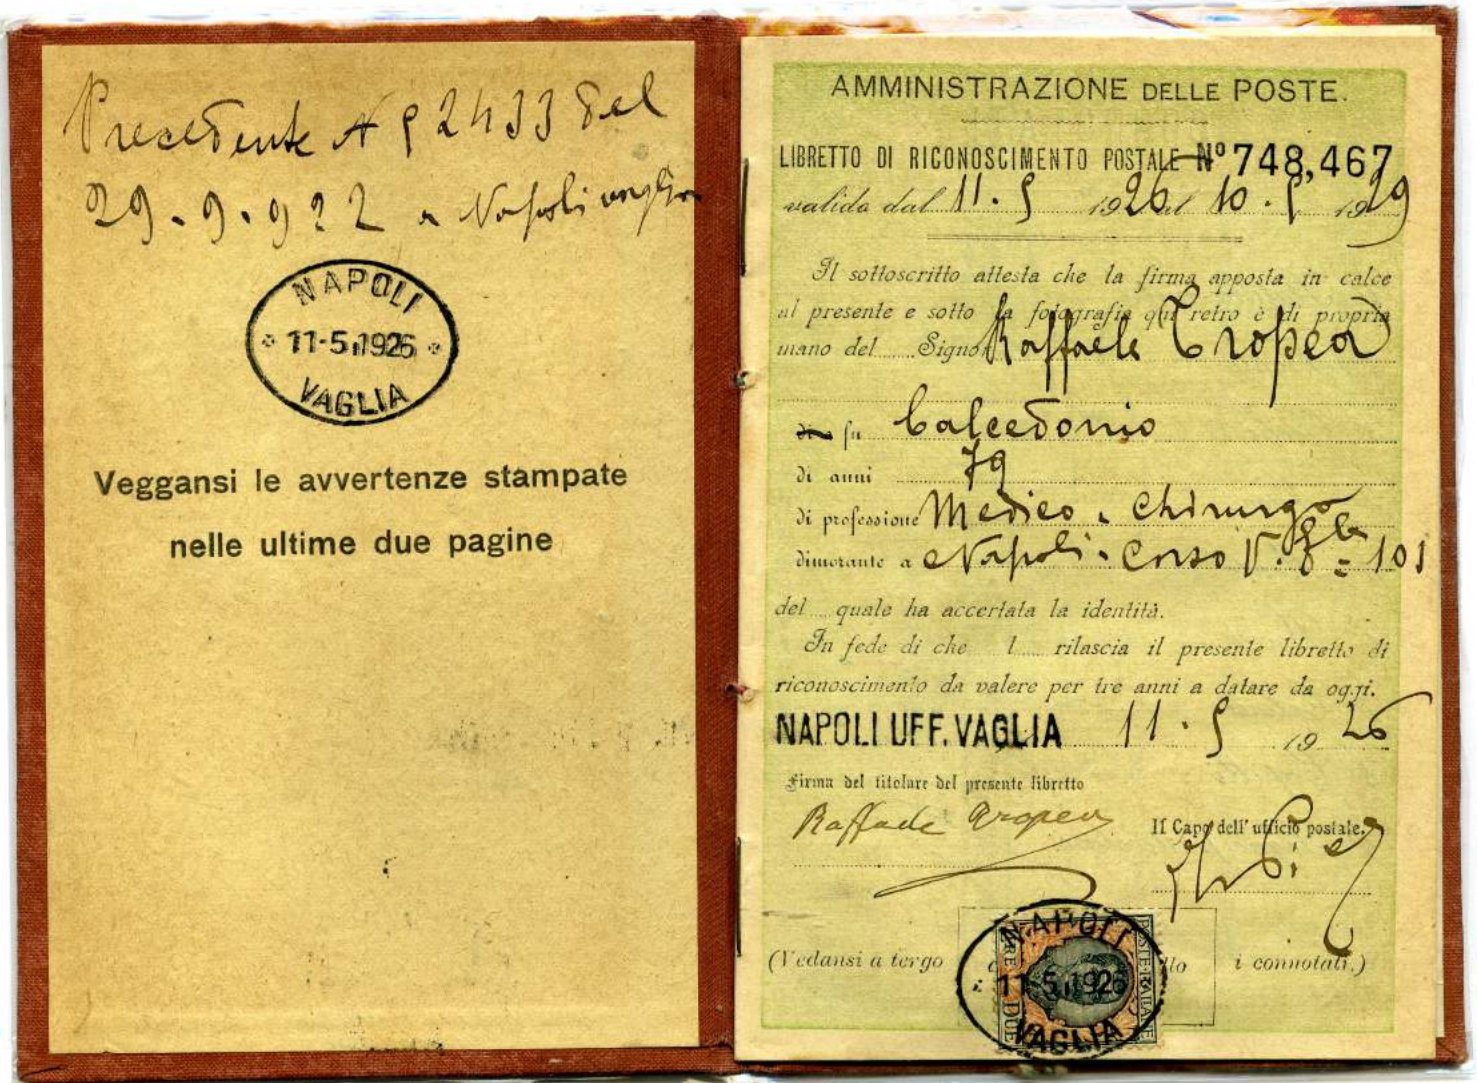 Precedente N 92433 del
29.9.922 a Napoli vaglia
NAPOLI
11-5.1926
VAGLIA
Veggansi le avvertenze stampate
nelle ultime due pagine
AMMINISTRAZIONE DELLE POSTE.
LIBRETTO DI RICONOSCIMENTO POSTALE Nº 748,467
valida dal 11.5 1926 al 10.5 1929
Il sottoscritto attesta che la firma apposta in calce
al presente e sotto la fotografia qui retro è di propria
mano del Signor Raffaele Tropea
di fu Calcedonio
di anni 79
di professione Medico. Chirurgo
dimorante a Napoli. Corso V. 101
del quale ha accertata la identità.
In fede di che l rilascia il presente libretto di
riconoscimento da valere per tre anni a datare da oggi.
NAPOLI UFF. VAGLIA 11.5 1926
Firma del titolare del presente libretto
Raffaele Tropea
Il Capo dell'ufficio postale.
(Vedansi a tergo llo i connotati.)
NAPOLI
11-5.1926
VAGLIA
POSTE ITALIANE
LIRE DUE